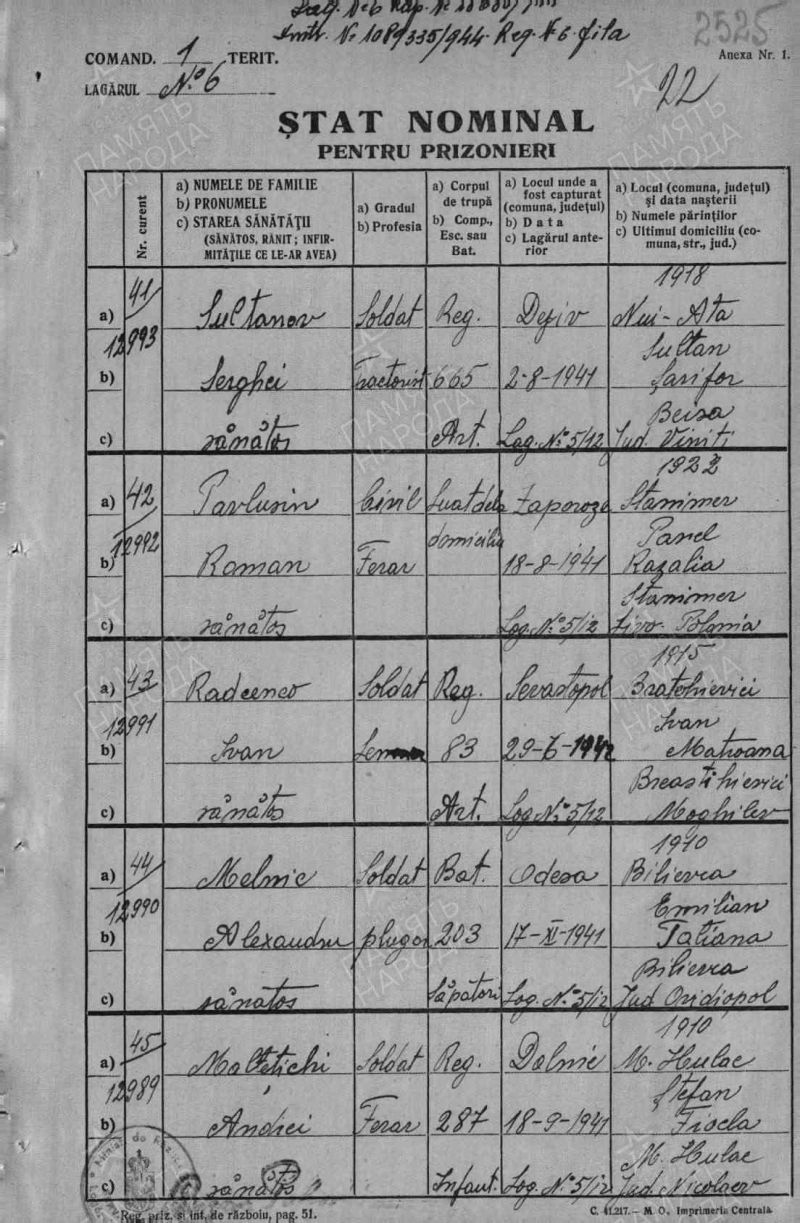 Lag. No 6 Rap. No
Intr. No 1089335/944. Reg. No 6. fila
2525
COMAND. 1 TERIT.
Anexa Nr. 1.
LAGĂRUL No 6
22
ȘTAT NOMINAL
PENTRU PRIZONIERI
Nr. curent
a) NUMELE DE FAMILIE
b) PRONUMELE
c) STAREA SĂNĂTĂȚII
(SĂNĂTOS, RĂNIT; INFIR-
MITĂȚILE CE LE-AR AVEA)
a) Gradul
b) Profesia
a) Corpul
de trupă
b) Comp.,
Esc. sau
Bat.
a) Locul unde a
fost capturat
(comuna, județul)
b) Data
c) Lagărul ante-
rior
a) Locul (comuna, județul)
și data nașterii
b) Numele părinților
c) Ultimul domiciliu (co-
muna, str., jud.)
41
1918
a) Sultanov Soldat Reg. Nui-Ata
12993
Sultan
b) Serghei Tractorist 665 2-8-1941 Șarifor
Beisa
c) sănătos Art. Lag. No 5/12 Jud. Viniți
1922
a) 42 Pavlusin Civil Luat dela Zaporoze Stanimer
12992
domiciliu
Pavel
b) Roman Ferar 18-8-1941 Razalia
Stanimer
c) sănătos Lag. No 5/12 Polonia
1915
a) 43 Radcenco Soldat Reg. Sevastopol Bratchievici
12991
Ivan
b) Ivan 83 29-6-1942 Matroana
Breastihievici
c) sănătos Art. Lag No 5/12 Moghilev
44
1910
a) Melnic Soldat Bat. Odesa Bilievca
12990
Emilian
b) Alexandru plugar 203 17-XI-1941 Tatiana
Bilievca
c) sănătos Săpători Lag. No 5/12 Jud Ovidiopol
45
1910
a) Soldat Reg. Dalnic M. Hulac
12989
Ștefan
b) Andrei Ferar 287 18-9-1941 Fiocla
M. Hulac
c) sănătos Infant. Lag. No 5/12 Jud. Nicolaev
Reg. priz. și int. de războiu, pag. 51.
C. 41.217. — M. O., Imprimeria Centrală.
ПАМЯТЬ
НАРОДА